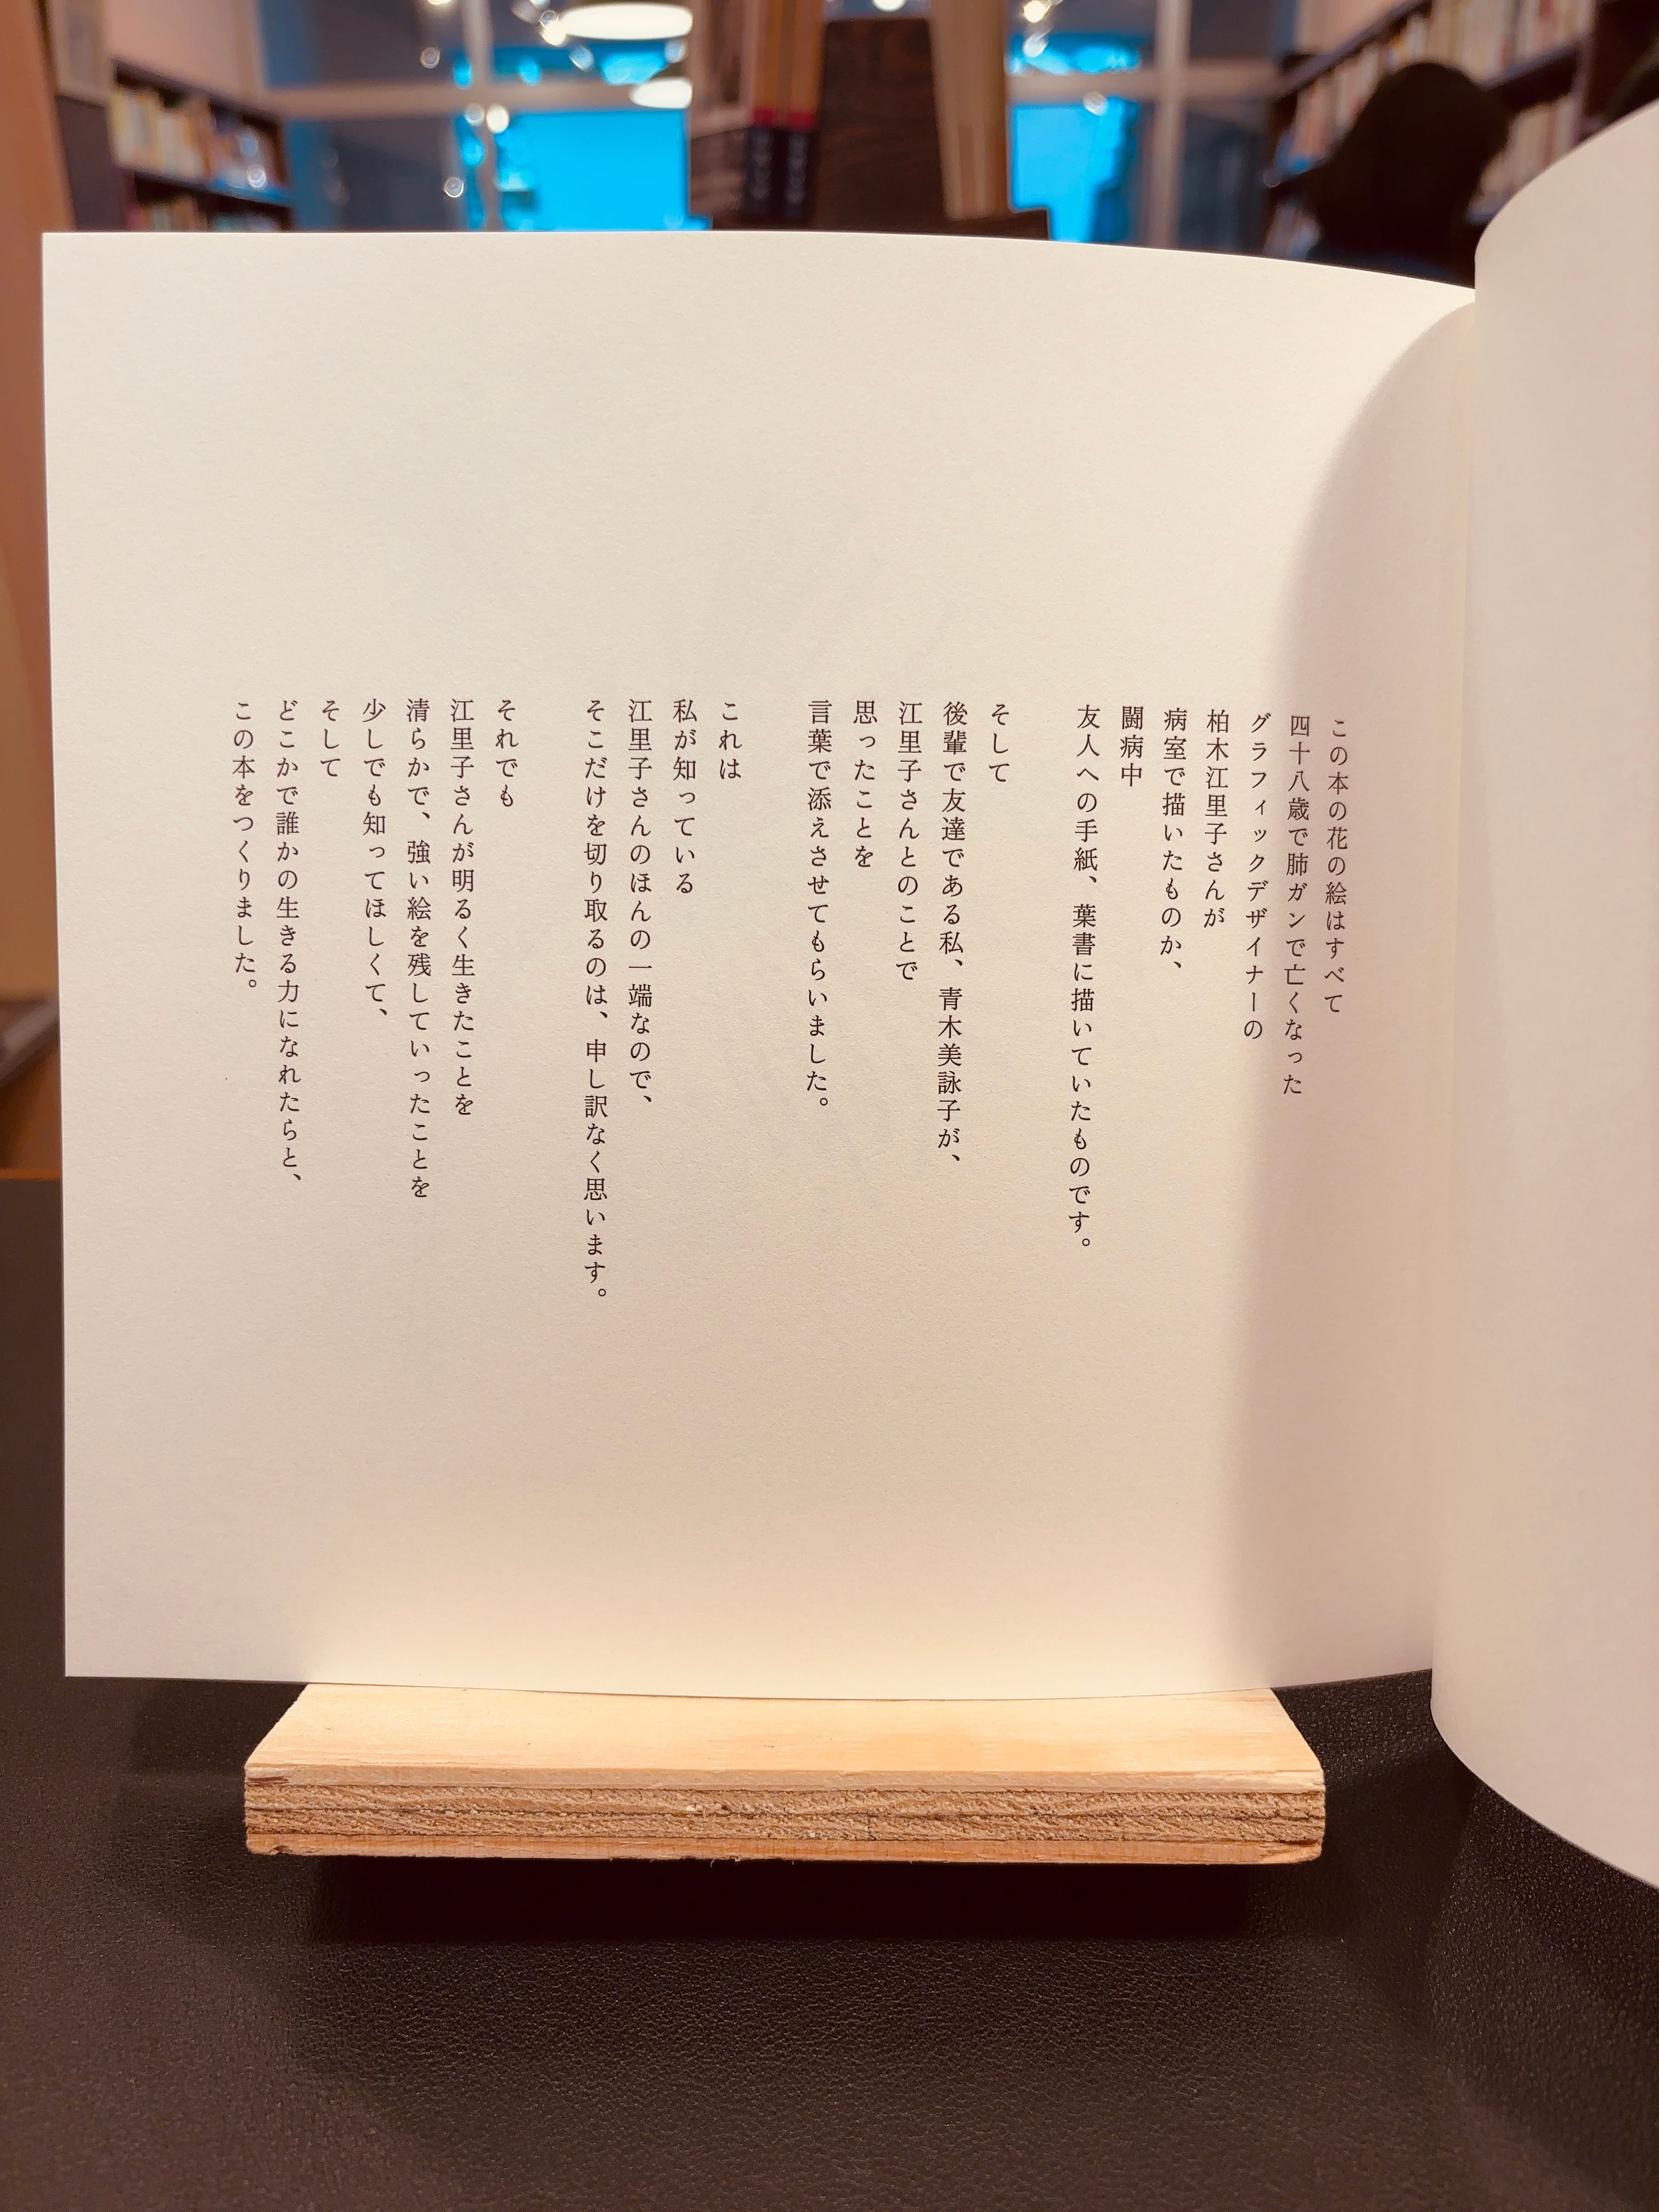 この本の花の絵はすべて
四十八歳で肺ガンで亡くなった
グラフィックデザイナーの
柏木江里子さんが
病室で描いたものか、
闘病中
友人への手紙、葉書に描いていたものです。
そして
後輩で友達である私、青木美詠子が、
江里子さんとのことで
思ったことを
言葉で添えさせてもらいました。
これは
私が知っている
江里子さんのほんの一端なので、
そこだけを切り取るのは、申し訳なく思います。
それでも
江里子さんが明るく生きたことを
清らかで、強い絵を残していったことを
少しでも知ってほしくて、
そして
どこかで誰かの生きる力になれたらと、
この本をつくりました。